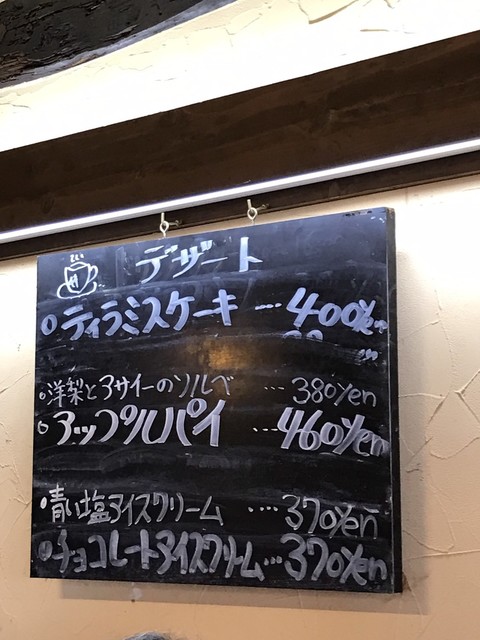 デザート
ティラミスケーキ … 400yen
洋梨とアサイーのソルベ … 380yen
アップルパイ … 460yen
青い塩アイスクリーム …. 370yen
チョコレートアイスクリーム … 370yen